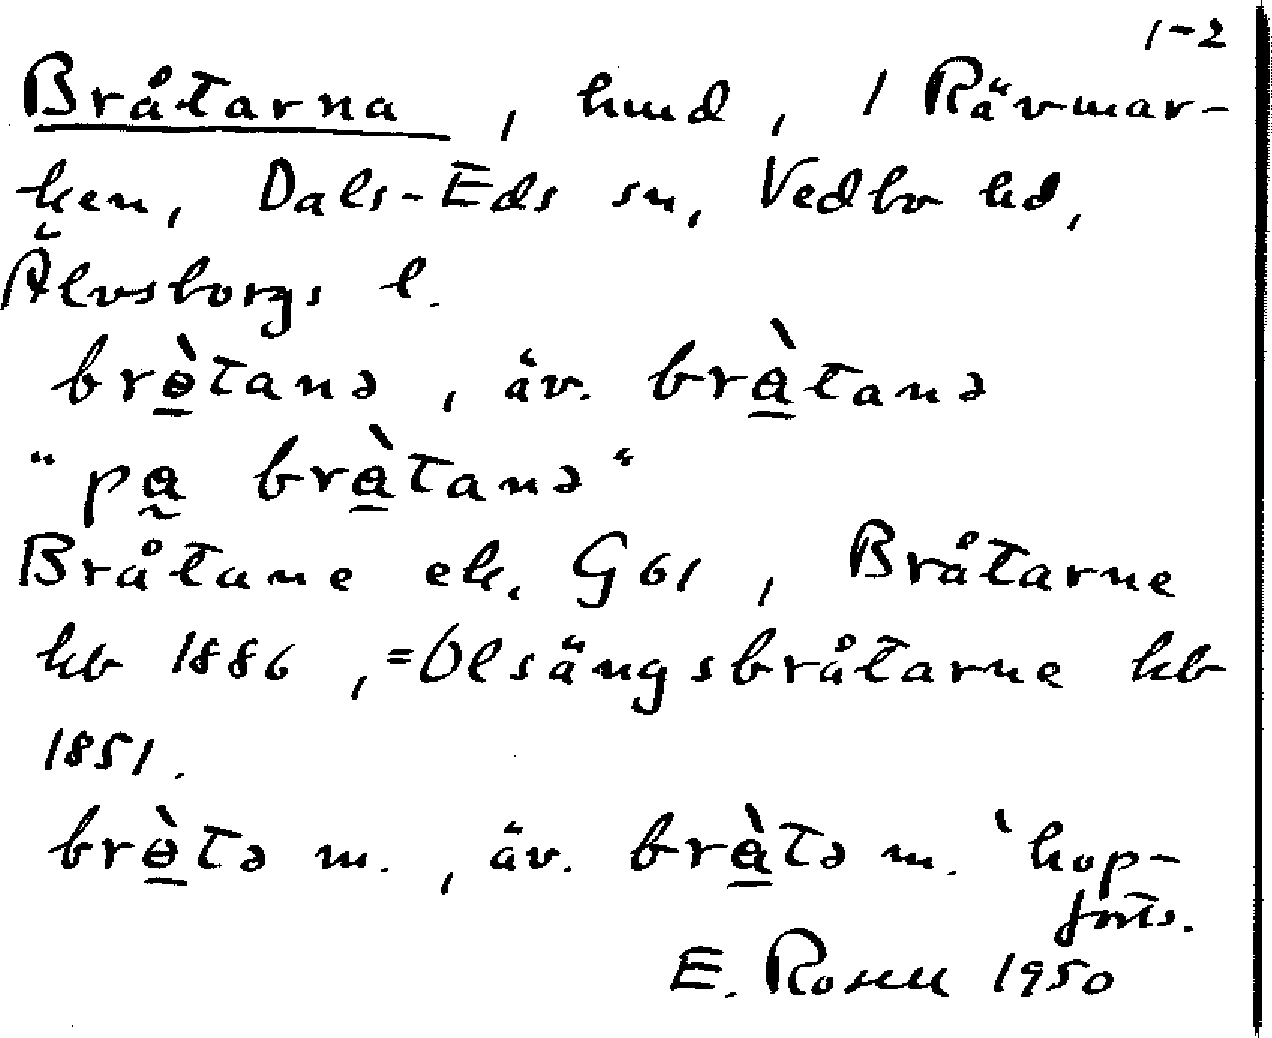 1-2
Bråtarna, hmd, 1 Rävmar-
ken, Dals-Eds sn, Vedbo hd,
Älvsborgs l.
brɵ̠̀tanə, äv. brà̠tanə
"pa̰ brà̠tanə"
Bråtane ek. G61, Bråtarne
kb 1886, =Olsängsbråtarne kb
1851.
brɵ̠̀tə m., äv. brà̠tə m. 'hop-
forts.
E. Rosell 1950